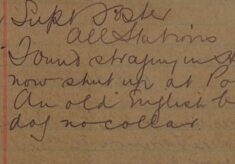 Supt Foster
All Stations
Found straying in
now shut up at Po
An old English b
dog no collar